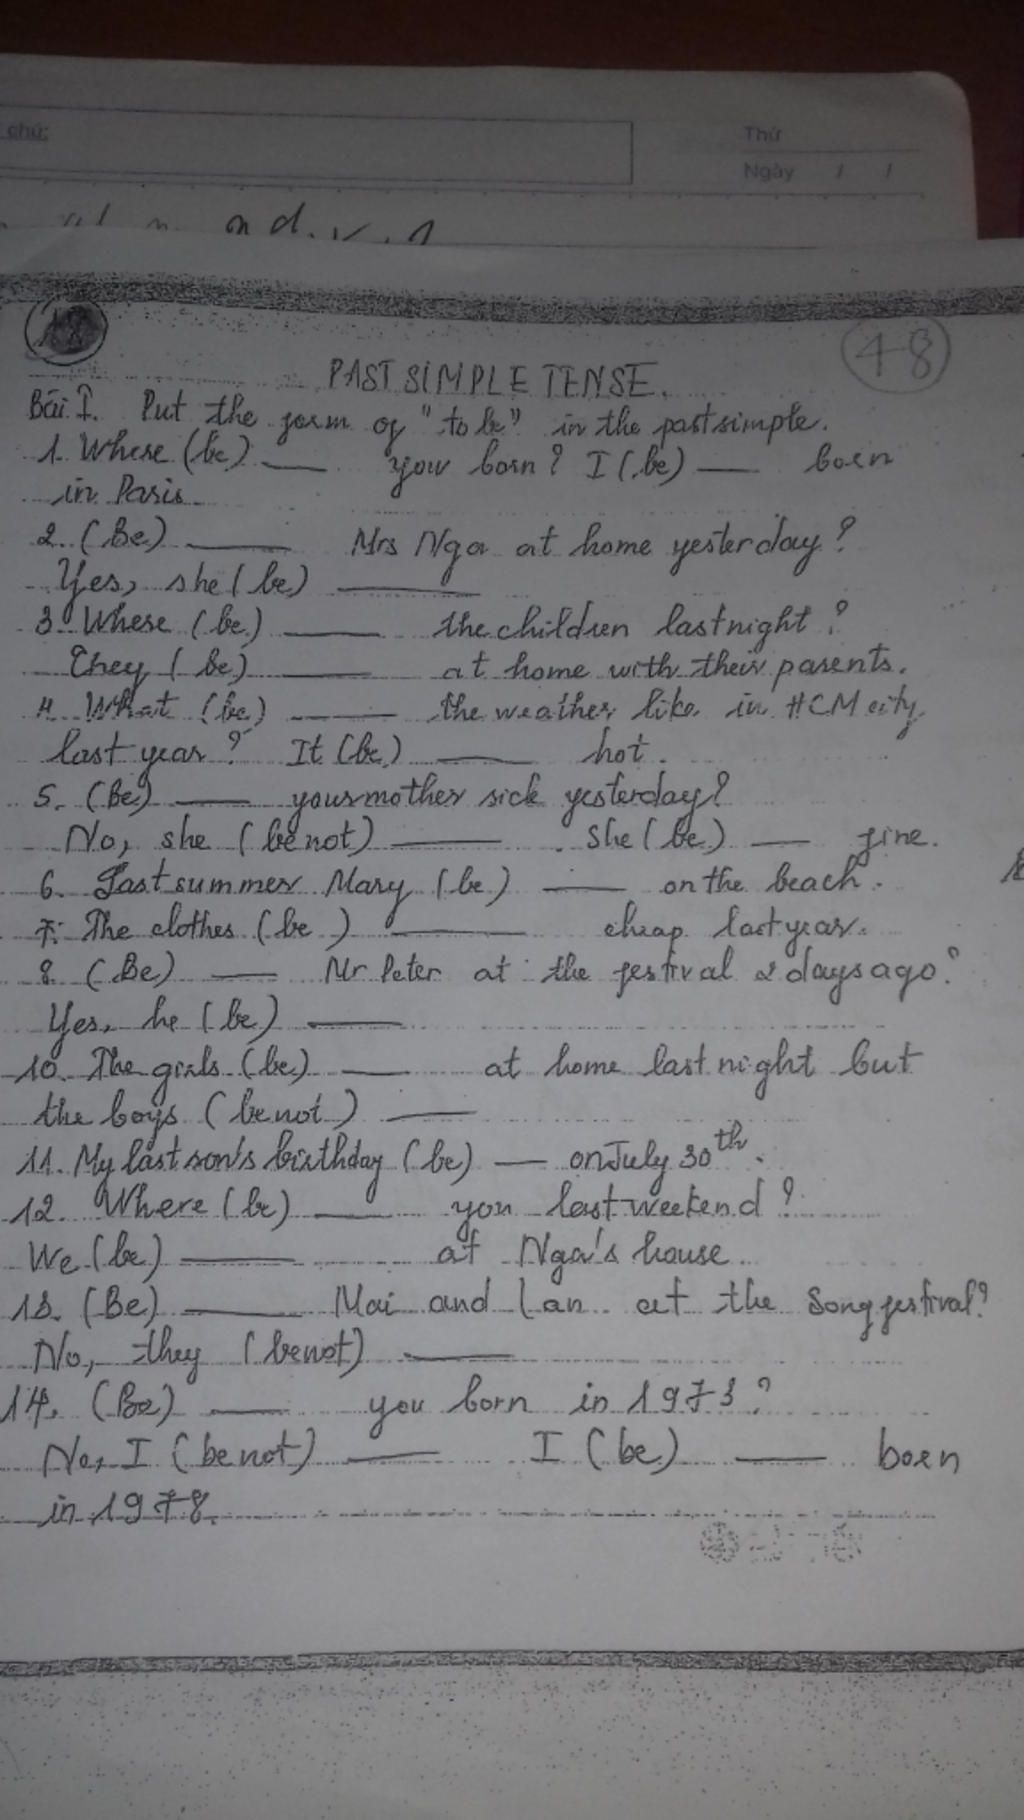 chú:
Thứ
Ngày / /
48
PAST SIMPLE TENSE.
Bài I. Put the form of "to be" in the past simple.
1. Where (be) ___ you born? I (be) ___ born
in Paris
2. (Be) ___ Mrs Nga at home yesterday?
Yes, she (be) ___
3. Where (be) ___ the children last night?
They (be) ___ at home with their parents.
4. What (be) ___ the weather like in HCM city
last year? It (be) ___ hot.
5. (Be) ___ your mother sick yesterday?
No, she (be not) ___. She (be) ___ fine.
6. Last summer Mary (be) ___ on the beach.
7. The clothes (be) ___ cheap last year.
8. (Be) ___ Mr Peter at the festival 2 days ago?
Yes, he (be) ___
10. The girls (be) ___ at home last night but
the boys (be not) ___
11. My last son's birthday (be) ___ on July 30th.
12. Where (be) ___ you last weekend?
We (be) ___ at Nga's house
13. (Be) ___ Mai and Lan at the Song festival?
No, they (be not) ___
14. (Be) ___ you born in 1973?
No, I (be not) ___ I (be) ___ born
in 1978.